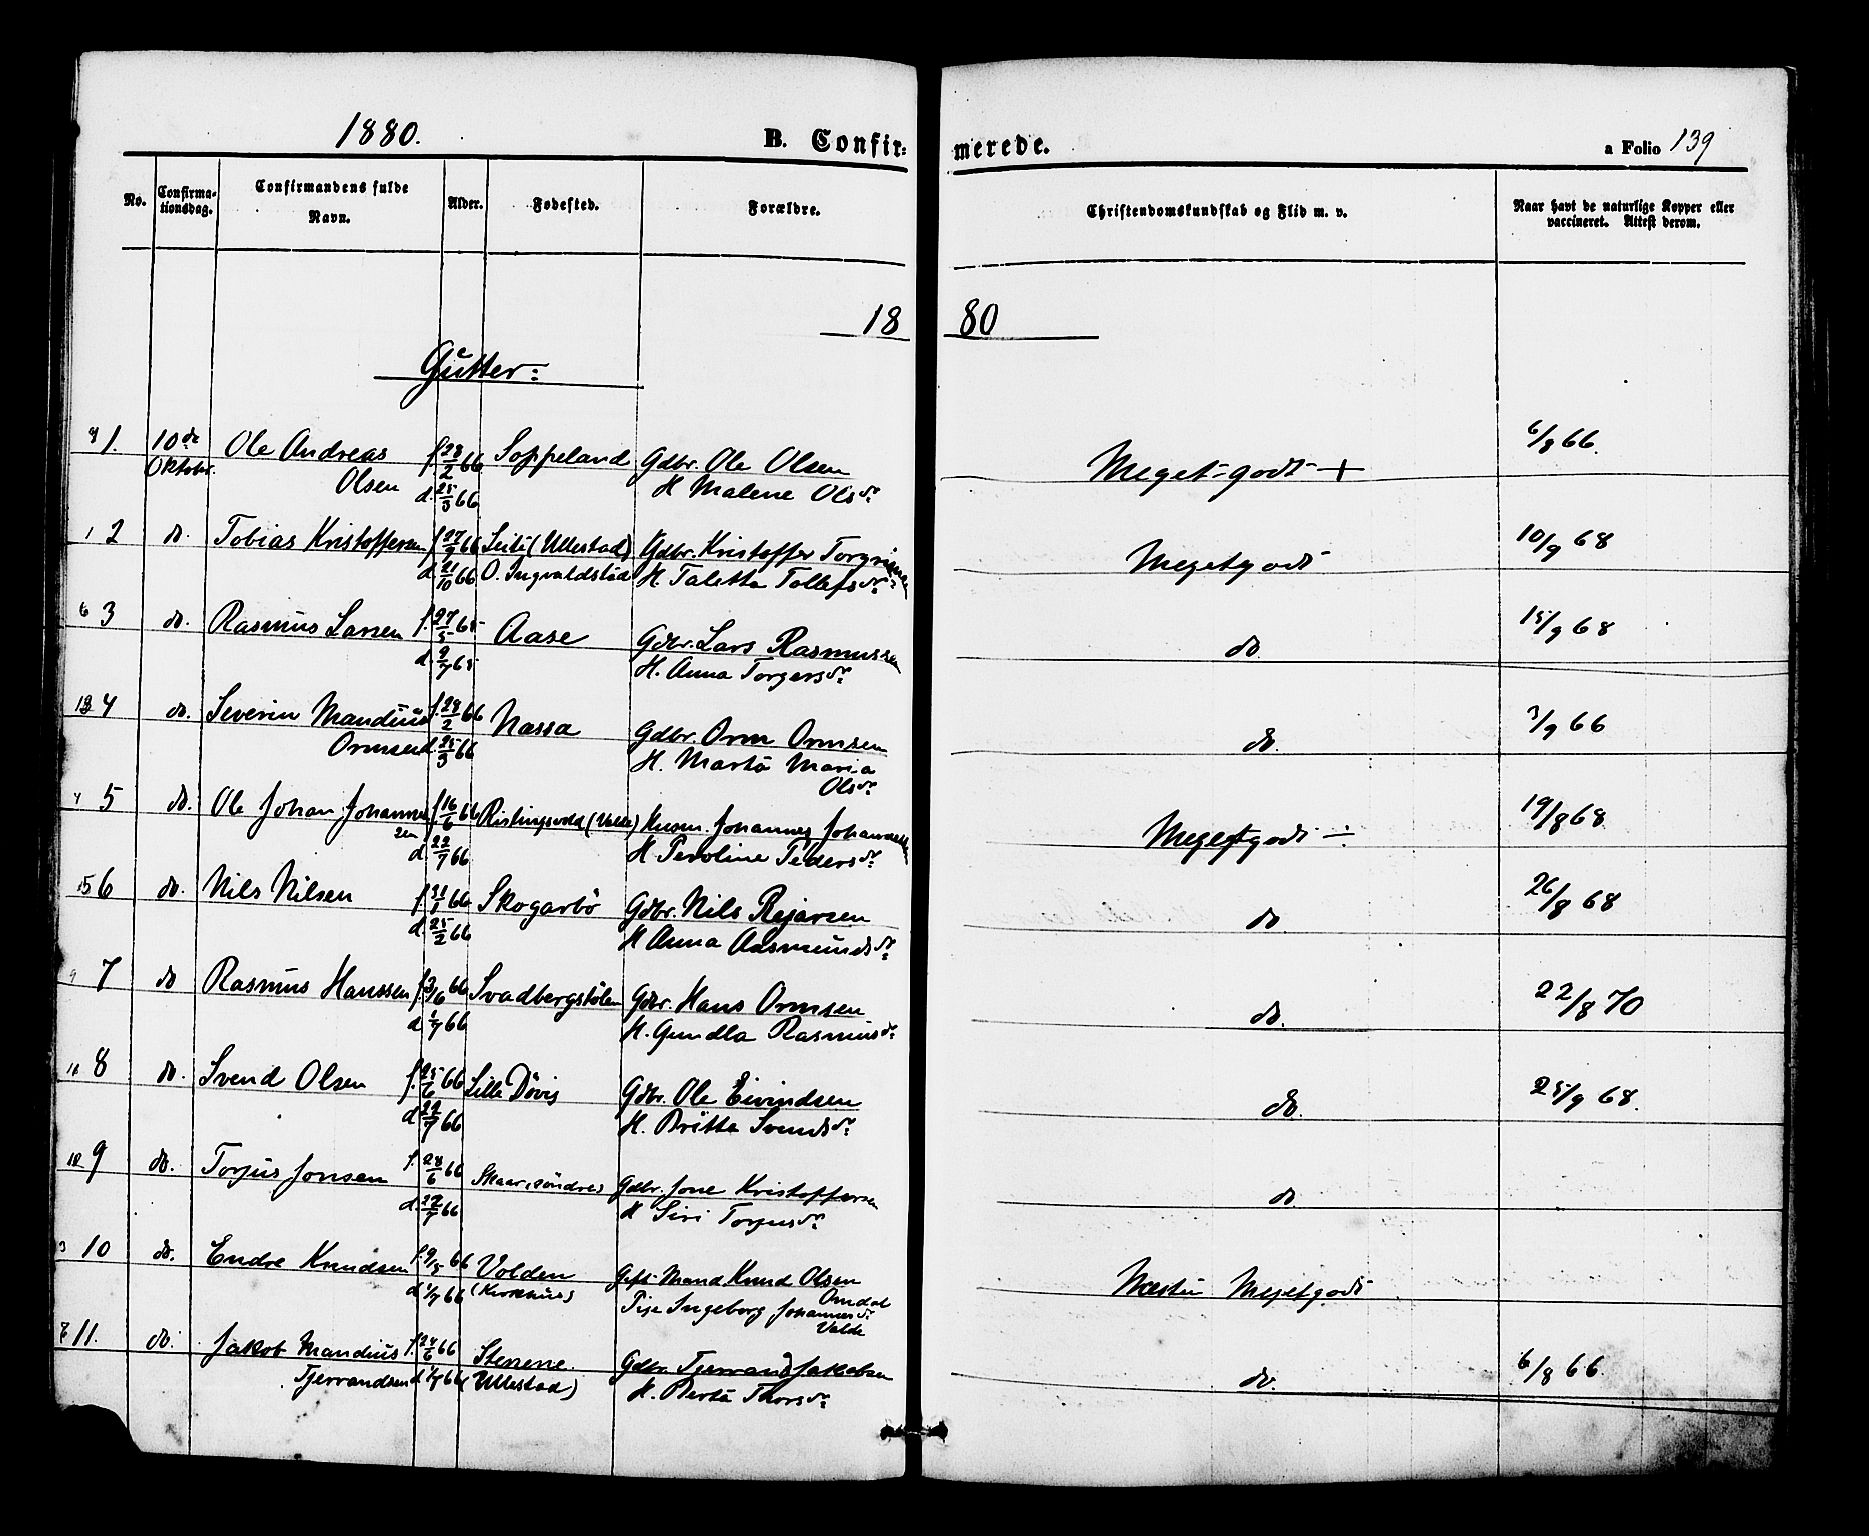 1880.
B. Confirmerede.
a Folio 139
No.
Confirmationsdag.
Confirmandens fulde Navn.
Alder.
Fødested.
Forældre.
Christendomskundskab og Flid m. v.
Naar havt de naturlige Kopper eller vaccineret. Attest derom.
1880
Gutter:
1. 10de Oktober. Ole Andreas f. 28/2 66 Soppeland Gdbr. Ole Olsen Meget godt + 6/9 66.
Olsen d. 25/3 66 H Malene Olsdr.
1 2 do. Tobias Kristoffersen f. 27/9 66 (Ullestad) Gdbr. Kristoffer Meget godt 10/9 68
d. 21/10 66 O. Ingvaldstad H. Taletta Tollefsdr.
6 3 do. Rasmus Larsen f. 27/5 65 Aase Gdbr. Lars Rasmussen do. 15/9 68
d. 9/7 65 H. Anna Torgersdr.
4 do. Severin Mandius f. 28/2 66 Nassa Gdbr. Orm Ormsen do. 3/9 66
Ormsen d. 25/3 66 H. Marta Maria
Olsdr.
4 5 do. Ole Johan Johannessen f. 16/6 66 Gdbr. Johannes Meget godt ÷ 19/8 68
d. 22/7 66 H. Peroline Pedersdr.
15 6 do. Nils Nilsen f. 31/1 66 Skogarbö Gdbr. Nils Rejarsen do 26/8 68
d. 25/2 66 H Anna Aasmundsdr.
9 7 do Rasmus Hanssen f. 3/6 66 Svadbergstölen Gdbr. Hans Ormsen do. 22/8 70
d. 1/7 66 H. Gundla Rasmusdr.
11 8 do. Svend Olsen f. 25/6 66 Lille Dövig Gdbr. Ole Eivindsen do. 25/9 68.
d. 22/7 66 H. Britta Svendsdr.
10 9 do. Torjus Jonsen f. 28/6 66 Skaar, söndre Gdbr. Jone Kristoffersen do.
d. 22/7 66 H Siri Torjusdr.
3 10 do. Endre Knudsen f. 9/5 66 Volden Gift Mand Knud Olsen Næsten Meget godt
d. 1/7 66 (Kirkhus) Omdal
Pige Ingeborg Johannesdr.
Valde
7 11. do. Jakob Mandius f. 24/6 66 Stenene. Gdbr. Tjerrand Jakobsen do. 6/8 66.
Tjerrandsen d. (Ullestad) H. Berta Thorsdr.